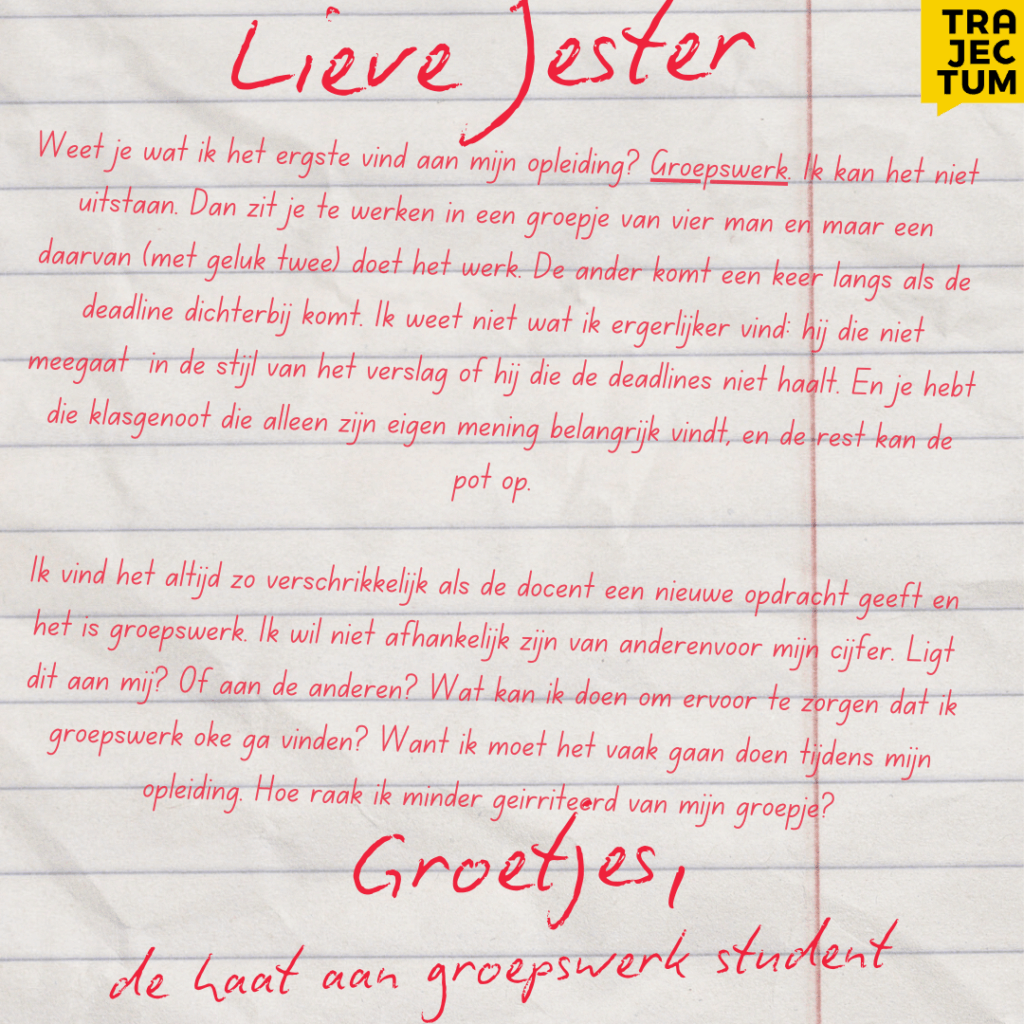 Lieve Jester
TRA
JEC
TUM
Weet je wat ik het ergste vind aan mijn opleiding? Groepswerk. Ik kan het niet
uitstaan. Dan zit je te werken in een groepje van vier man en maar een
daarvan (met geluk twee) doet het werk. De ander komt een keer langs als de
deadline dichterbij komt. Ik weet niet wat ik ergerlijker vind: hij die niet
meegaat in de stijl van het verslag of hij die de deadlines niet haalt. En je hebt
die klasgenoot die alleen zijn eigen mening belangrijk vindt, en de rest kan de
pot op.
Ik vind het altijd zo verschrikkelijk als de docent een nieuwe opdracht geeft en
het is groepswerk. Ik wil niet afhankelijk zijn van anderenvoor mijn cijfer. Ligt
dit aan mij? Of aan de anderen? Wat kan ik doen om ervoor te zorgen dat ik
groepswerk oke ga vinden? Want ik moet het vaak gaan doen tijdens mijn
opleiding. Hoe raak ik minder geirriteerd van mijn groepje?
Groetjes,
de haat aan groepswerk student